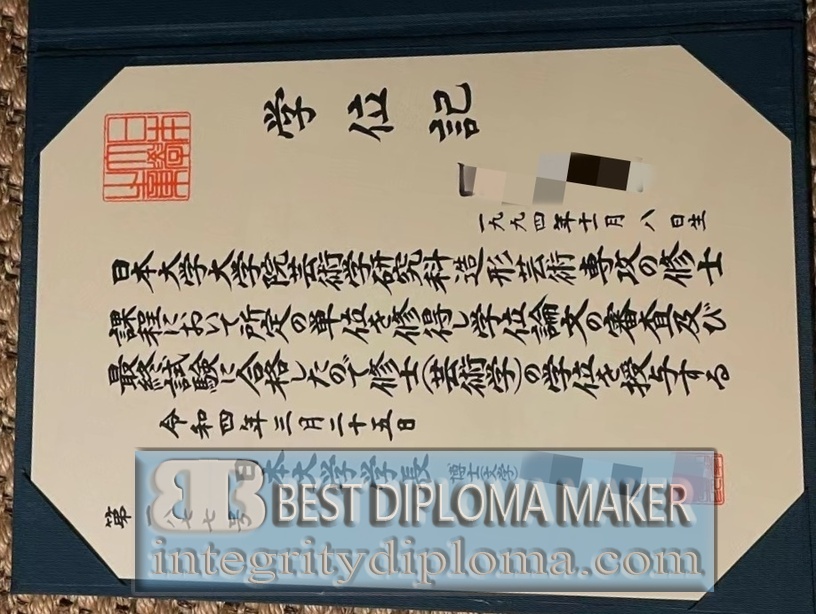 学位記
一九九四年十一月八日生
日本大学大学院芸術学研究科造形芸術専攻の修士
課程において所定の単位を修得し学位論文の審査及び
最終試験に合格したので修士（芸術学）の学位を授与する
令和四年三月二十五日
日本大学学長 博士（文学）
第 八七七号
BB BEST DIPLOMA MAKER
integritydiploma.com